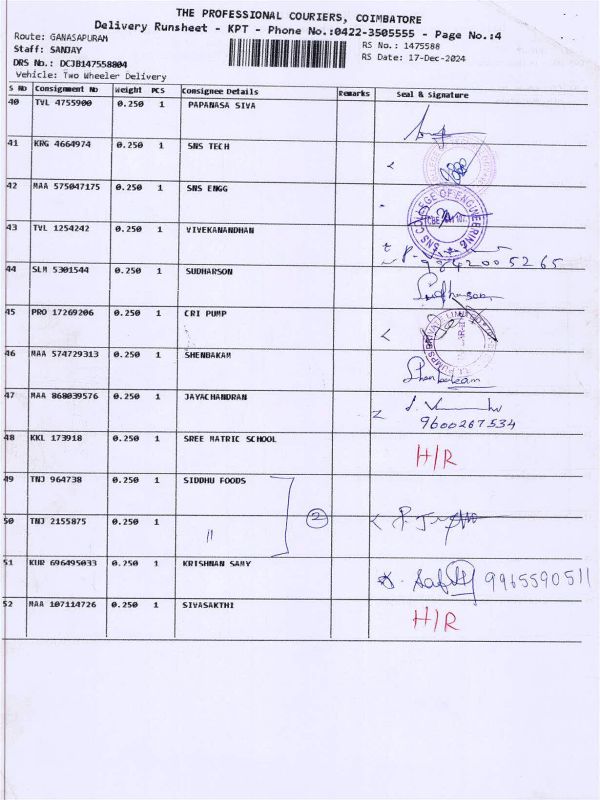 THE PROFESSIONAL COURIERS, COIMBATORE
Delivery Runsheet - KPT - Phone No.:0422-3505555 - Page No.:4
Route: GANASAPURAM
RS No.: 1475588
Staff: SANJAY
RS Date: 17-Dec-2024
DRS No.: DCJB147558804
Vehicle: Two Wheeler Delivery
S No Consignment No Weight PCS Consignee Details Remarks Seal & Signature
40 TVL 4755900 0.250 1 PAPANASA SIVA
41 KRG 4664974 0.250 1 SNS TECH
42 MAA 575047175 0.250 1 SNS ENGG
SNS COLLEGE OF ENGINEERING
43 TVL 1254242 0.250 1 VIVEKANANDHAN
9842005265
44 SLM 5301544 0.250 1 SUDHARSON
Sudharson
45 PRO 17269206 0.250 1 CRI PUMP
46 MAA 574729313 0.250 1 SHENBAKAM
Shenbakam
47 MAA 868039576 0.250 1 JAYACHANDRAN
9600267534
48 KKL 173918 0.250 1 SREE MATRIC SCHOOL
H/R
49 TNJ 964738 0.250 1 SIDDHU FOODS
2
50 TNJ 2155875 0.250 1 "
51 KUR 696495033 0.250 1 KRISHNAN SAMY
9965590511
52 MAA 107114726 0.250 1 SIVASAKTHI
H/R